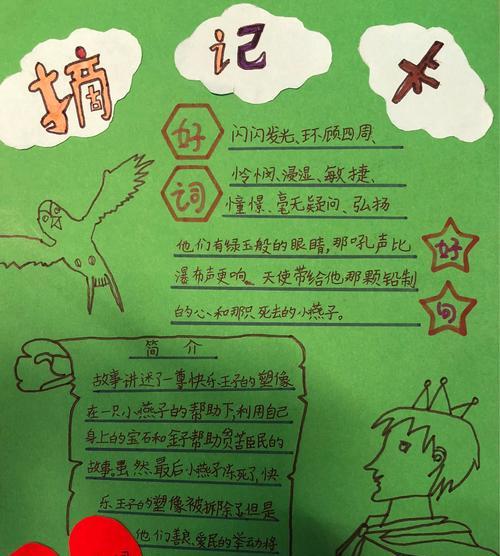 摘记卡
好词
闪闪发光、环顾四周、
怜悯、浸湿、敏捷、
憧憬、毫无疑问、弘扬
好句
他们有绿玉般的眼睛,那吼声比
瀑布声更响。天使带给他那颗铅制
的心和那只死去的小燕子。
简 介
故事讲述了一尊快乐王子的塑像
在一只小燕子的帮助下,利用自己
身上的宝石和金子帮助贫苦臣民的
故事。虽然最后小燕子冻死了,快
乐王子的塑像被拆除了但是
他们善良、爱民的举动将